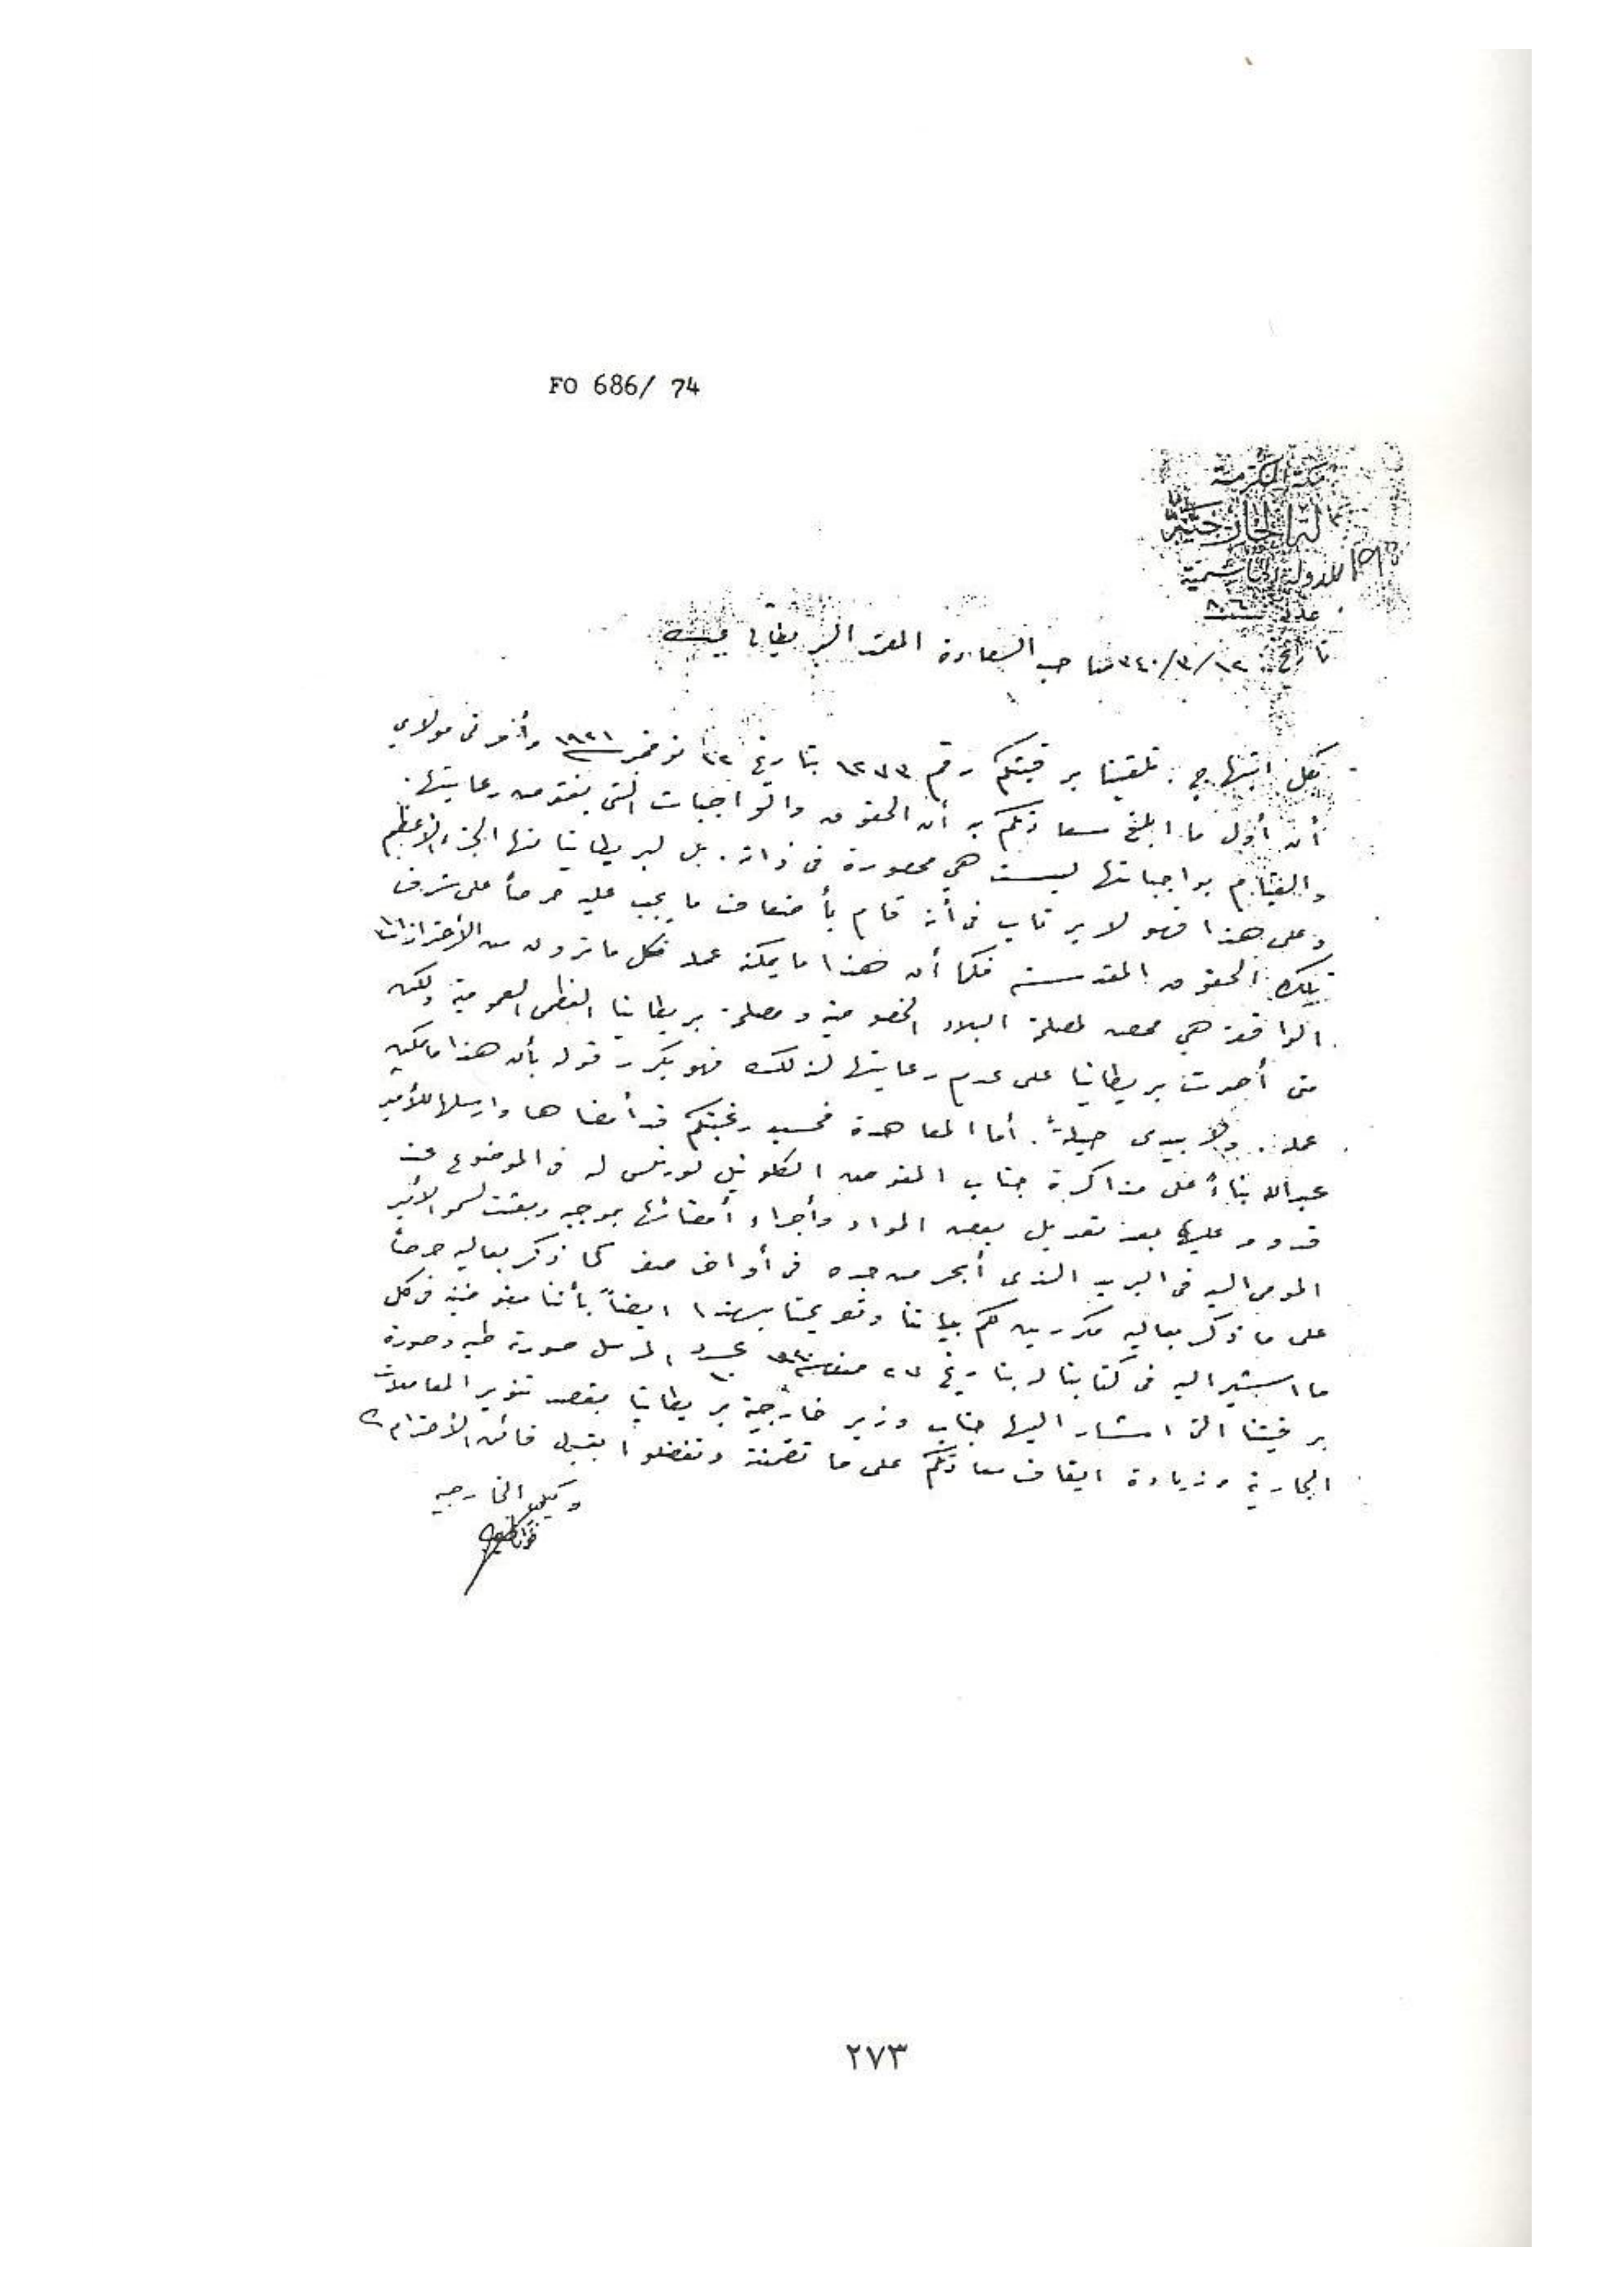 FO 686/ 74
مكة المكرمة
للدولة الهاشمية
عدد
تاريخ ١٢/٣/٣٤٠ صاحب السعادة المعتمد البريطاني بجده
بكل ابتهاجي. تلقينا برقيتكم رقم ١٢٧٣ بتاريخ ٢٢ نوفمبر ١٩٢١ وأمرني مولاي
أن أول ما ابلغ سعادتكم به أن الحقوق والواجبات التي رعايتها.
والقيام بواجباتها ليست هي محصورة في ذاته. بل لبريطانيا منها الجزء الأعظم
وعلى هذا فهو لا يرتاب في أنه قام بأضعاف ما يجب عليه حرصاً على شرف
تلك الحقوق المقدسة فكما أن هذا ما يمكنه عمله فكل ما ترون من الأحترازات
الواقعة هي محض لمصلحة البلاد الخصوصية ومصلحة بريطانيا العظمى العمومية ولكن
متى أصرت بريطانيا على عدم رعايتها لذلك فهو يكرر قوله بأن هذا ما يمكن
عمله. ولا يبدى حيلةً. أما المعاهدة فحسب رغبتكم قد أمضاها وارسلها للأمير
عبدالله بناءً على مذاكرة جناب المفوض الكلونيل لورنس له في الموضوع عند
قدومه عليه بعد تعديل بعض المواد وأجراء أمضائها بموجبه وبعثت لسمو الأمير
المومى اليه في البريد الذى أبحر من جده في أواخر صفر كما ذكر بعاليه حرصاً
على ما ذكر بعاليه مكررين لكم بياننا وتصريحنا بهذا ايضاً بأننا مفوضين في كل
ما اشير اليه في كتابنا له بتاريخ ٢٧ صفر المرسل صورته طيه وصورة
برقيتنا التي اشار اليها جناب وزير خارجية بريطانيا بقصد تنوير المعاملات
الجارية وزيادة ايقاف سعادتكم على ما تضمنته وتفضلوا بقبول فائق الأحترام
وكيل الخارجيه
٢٧٣